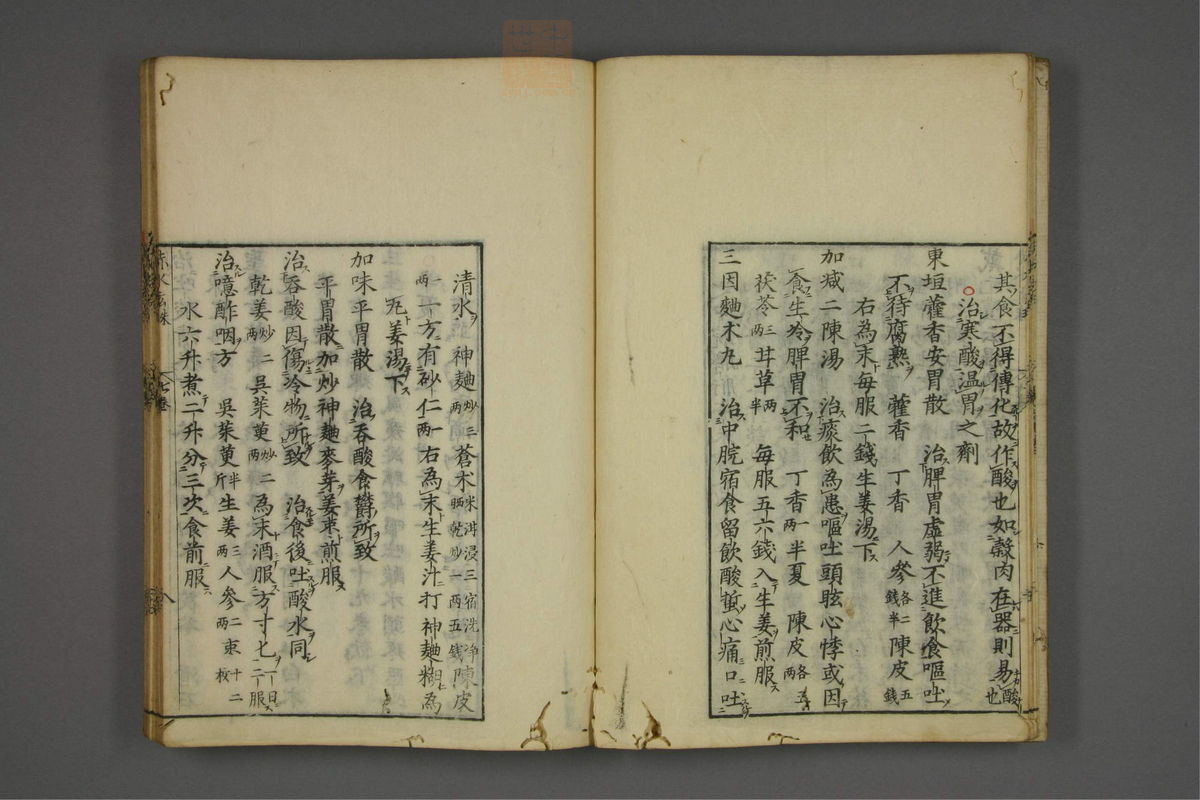 其食不得傳化故作酸也如穀肉在器則易酸也
治寒酸溫胃之劑
東垣藿香安胃散 治脾胃虛弱不進飲食嘔吐
不待腐熟 藿香 丁香 人參各二錢半 陳皮五錢
右為末每服二錢生姜湯下
加減二陳湯 治痰飲為患嘔吐頭眩心悸或因
食生冷脾胃不和 丁香一兩 半夏 陳皮各五兩
茯苓三兩 甘草兩半 每服五六錢入生姜煎服
三因麯朮丸 治中脘宿食留飲酸蜇心痛口吐
清水 神麯炒三兩 蒼朮米泔浸三宿洗淨晒乾炒一兩五錢 陳皮
一兩 一方有砂仁一兩 右為末生姜汁打神麯糊為
丸姜湯下
加味平胃散 治吞酸食欝所致
平胃散加炒神麯麥芽姜棗煎服
治吞酸因傷冷物所致 治食後吐酸水同
乾姜炒二兩 吳茱萸炒二兩 為末酒服方寸匕一日二服
治噫酢咽方 吳茱萸半斤 生姜三兩 人參二兩 棗十二枚
水六升煮二升分三次食前服
赤水玄珠 七卷 八